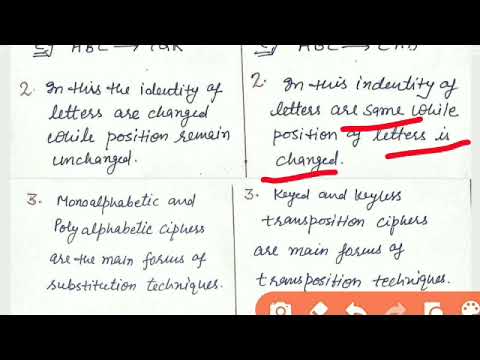 2. In this the identity of
letters are changed
while position remain
unchanged.
3. Monoalphabetic and
Polyalphabetic ciphers
are the main forms of
substitution techniques.
2. In this indentity of
letters are same while
position of letters is
changed.
3. Keyed and Keyless
transposition ciphers
are main forms of
transposition techniques.